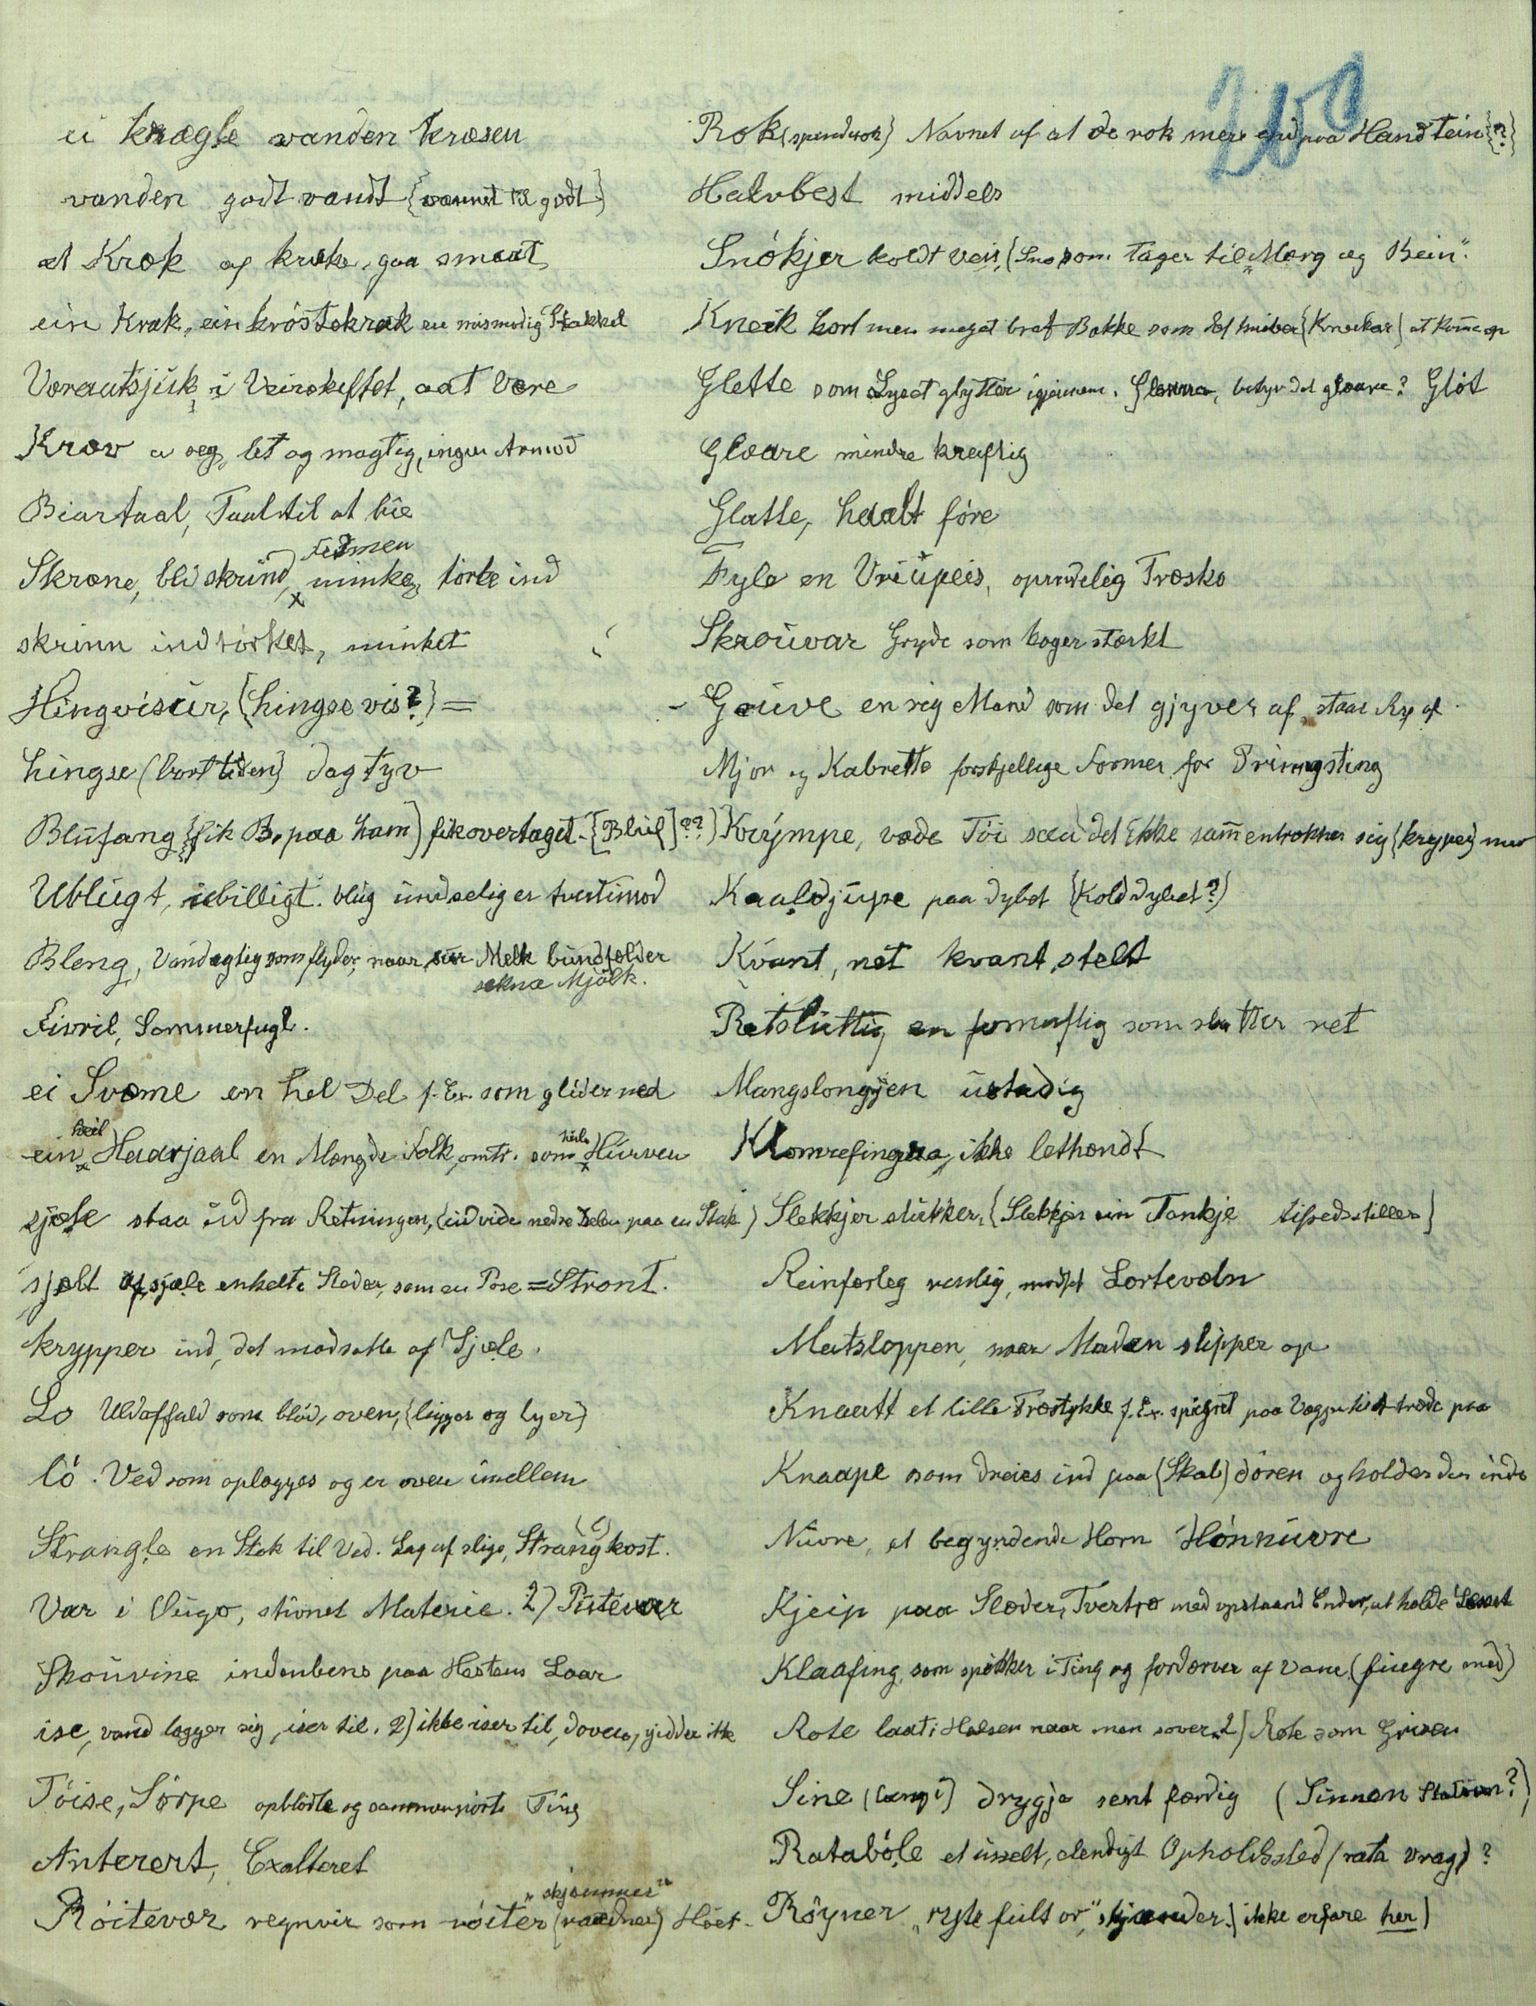 200
ei krægle vanden kræsen
vanden godt vandt {vænnet til godt}
at Kræk af kræke, gaa smaat
ein Kræk, ein kröstekræk en mismodig Stakkel
Væreautsjisk, i Veirskiftet, aat være
Kræv a seg, let og mægtig, ingen Armod
Biartaal, Taal til at bie
Skræne, bli skrind, Fedmen minker, törke ind
skrinn indtörket, minket
Hingvisur, {hingse vis?} =
hingse (bort tiden) dagtyv
Blufang {fik B, paa ham} fik overtaget. [Blui]??)
Ublugt, ubilligt. blug undselig er tvertimod
Bleng, Vandagtig som flyder, naar sur Melk bundfælder
sekna Mjölk.
Fivril, Sommerfugl.
ei Svæme en hel Del f. Ex. som glider ned
ein heil Haarjaal en Mængde Folk, omtr. som heile Hurven
sjæle staa ud fra Retningen, (udvide nedre Delen paa en Stak)
sjælt af sjæle enkelte Steder, som en Pose = Stront.
krypper ind, det modsatte af Sjæle.
Lo Uldaffald som blöd, oven, {ligger og lyer}
ló. Ved som oplægges og er oven imellem
Strangle en Stok til Ved. Lag af slige, Strang(l)kost.
Var i Augo, stivnet Materie. 2) Putevær
Skouvine indenbens paa Hestens Laar
ise, vand lægger sig, iser til. 2) ikke iser til, doven, gidder ikke
Töise, Sörpe opblödte og sammenrörte Ting
Anterert, Exalteret
Röitevær regnveir som röiter "skjæmmer" (raadner) Höet.
Rok {spinderok} Navnet af at de rok mere end paa Handtein {?}
Halvbest middels
Snókjer koldt Veir, {Sno som tager til "Marg og Bein".
Kneik kort men meget brat Bakke som det kniber {Kneikar} at komme op
Glette som Lyset glytter igjennem. Glenna, betyr det glæare? Glöt
Glæare mindre kræftig
Glatte, haalt före
Fyle en Vriupeis, opundelig Træsko
Skrouvar Gryde som koger stærkt
Gruve en rig Mand som det gjyver af, staar Ry af
Mjor og Kabrette forskjellige Former for Primgsting
Krympe, væde Töi saa det ikke sammentrækker sig {kryper} mer
Kaaldjupe paa dybet {Kolddybet?)
Kvant, net kvant, stelt
Retsluttig en fornuftig som slutter ret
Mangslongjen ustadig
Klomrefingra, ikke lethændt
Slekkjer slukker, {Slekkjer ein Tankje tifredsstiller}
Reinfærleg renlig, modst Lortevoln
Matsloppen, naar Maden slipper op
Knaatt et lille Træstykke f. Ex. spigret paa Væggen til at træde paa
Knaape som dreies ind paa (Skab) dören og holder den inde
Nuvre, et begyndende Horn Hönnuvre
Kjeip paa Slæder, Tvertræ med opstaaend Ender, at holde Læsset
Klaafing, som spikker i Ting og fordærver af Vane. (fingre med)
Rote laat i Halsen naar man sover. 2) Rote som Grisen
Sine (længi) drygja sent færdig (Sinnen Statuen?)
Ratabóle et usselt, elendigt Opholdssted (rata vrag) ?
Röyner "ryte fult or", skjænder. {ikke erfare her)